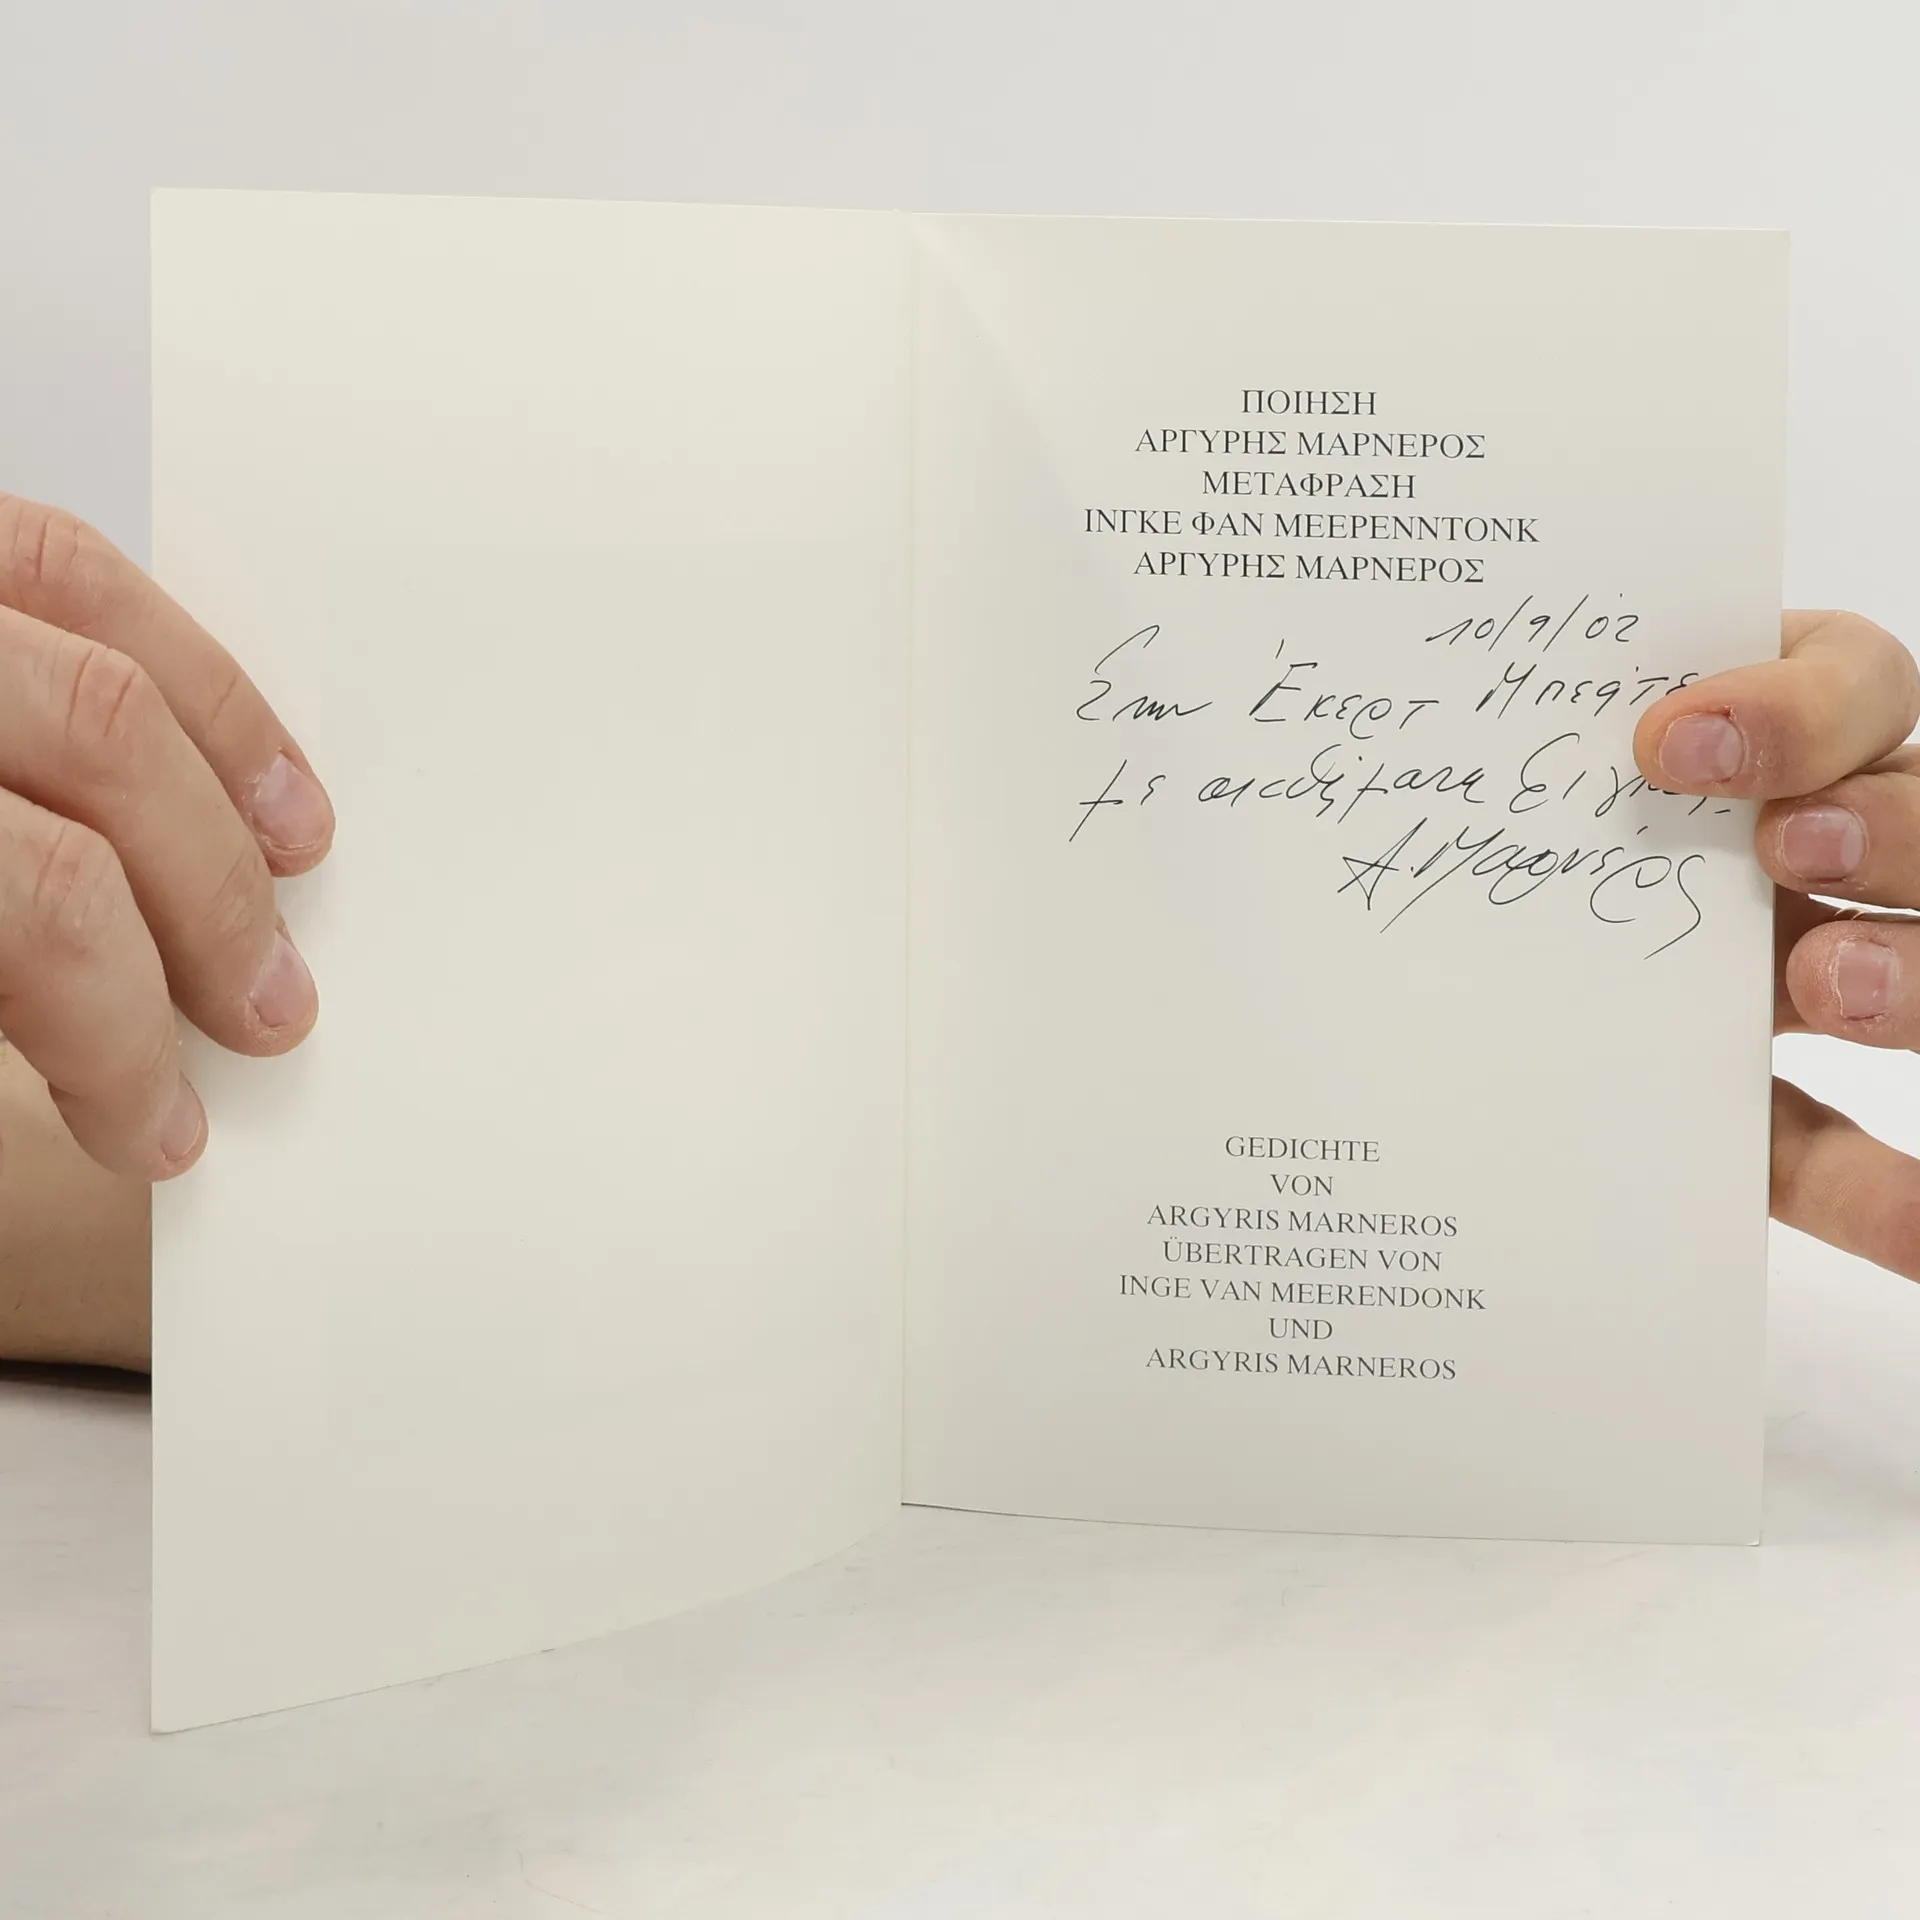 ΠΟΙΗΣΗ
ΑΡΓΥΡΗΣ ΜΑΡΝΕΡΟΣ
ΜΕΤΑΦΡΑΣΗ
ΙΝΓΚΕ ΦΑΝ ΜΕΕΡΕΝΝΤΟΝΚ
ΑΡΓΥΡΗΣ ΜΑΡΝΕΡΟΣ
10/9/02
Στην Έκερτ
με αισθήματα
Α. Μαρνέρος
GEDICHTE
VON
ARGYRIS MARNEROS
ÜBERTRAGEN VON
INGE VAN MEERENDONK
UND
ARGYRIS MARNEROS